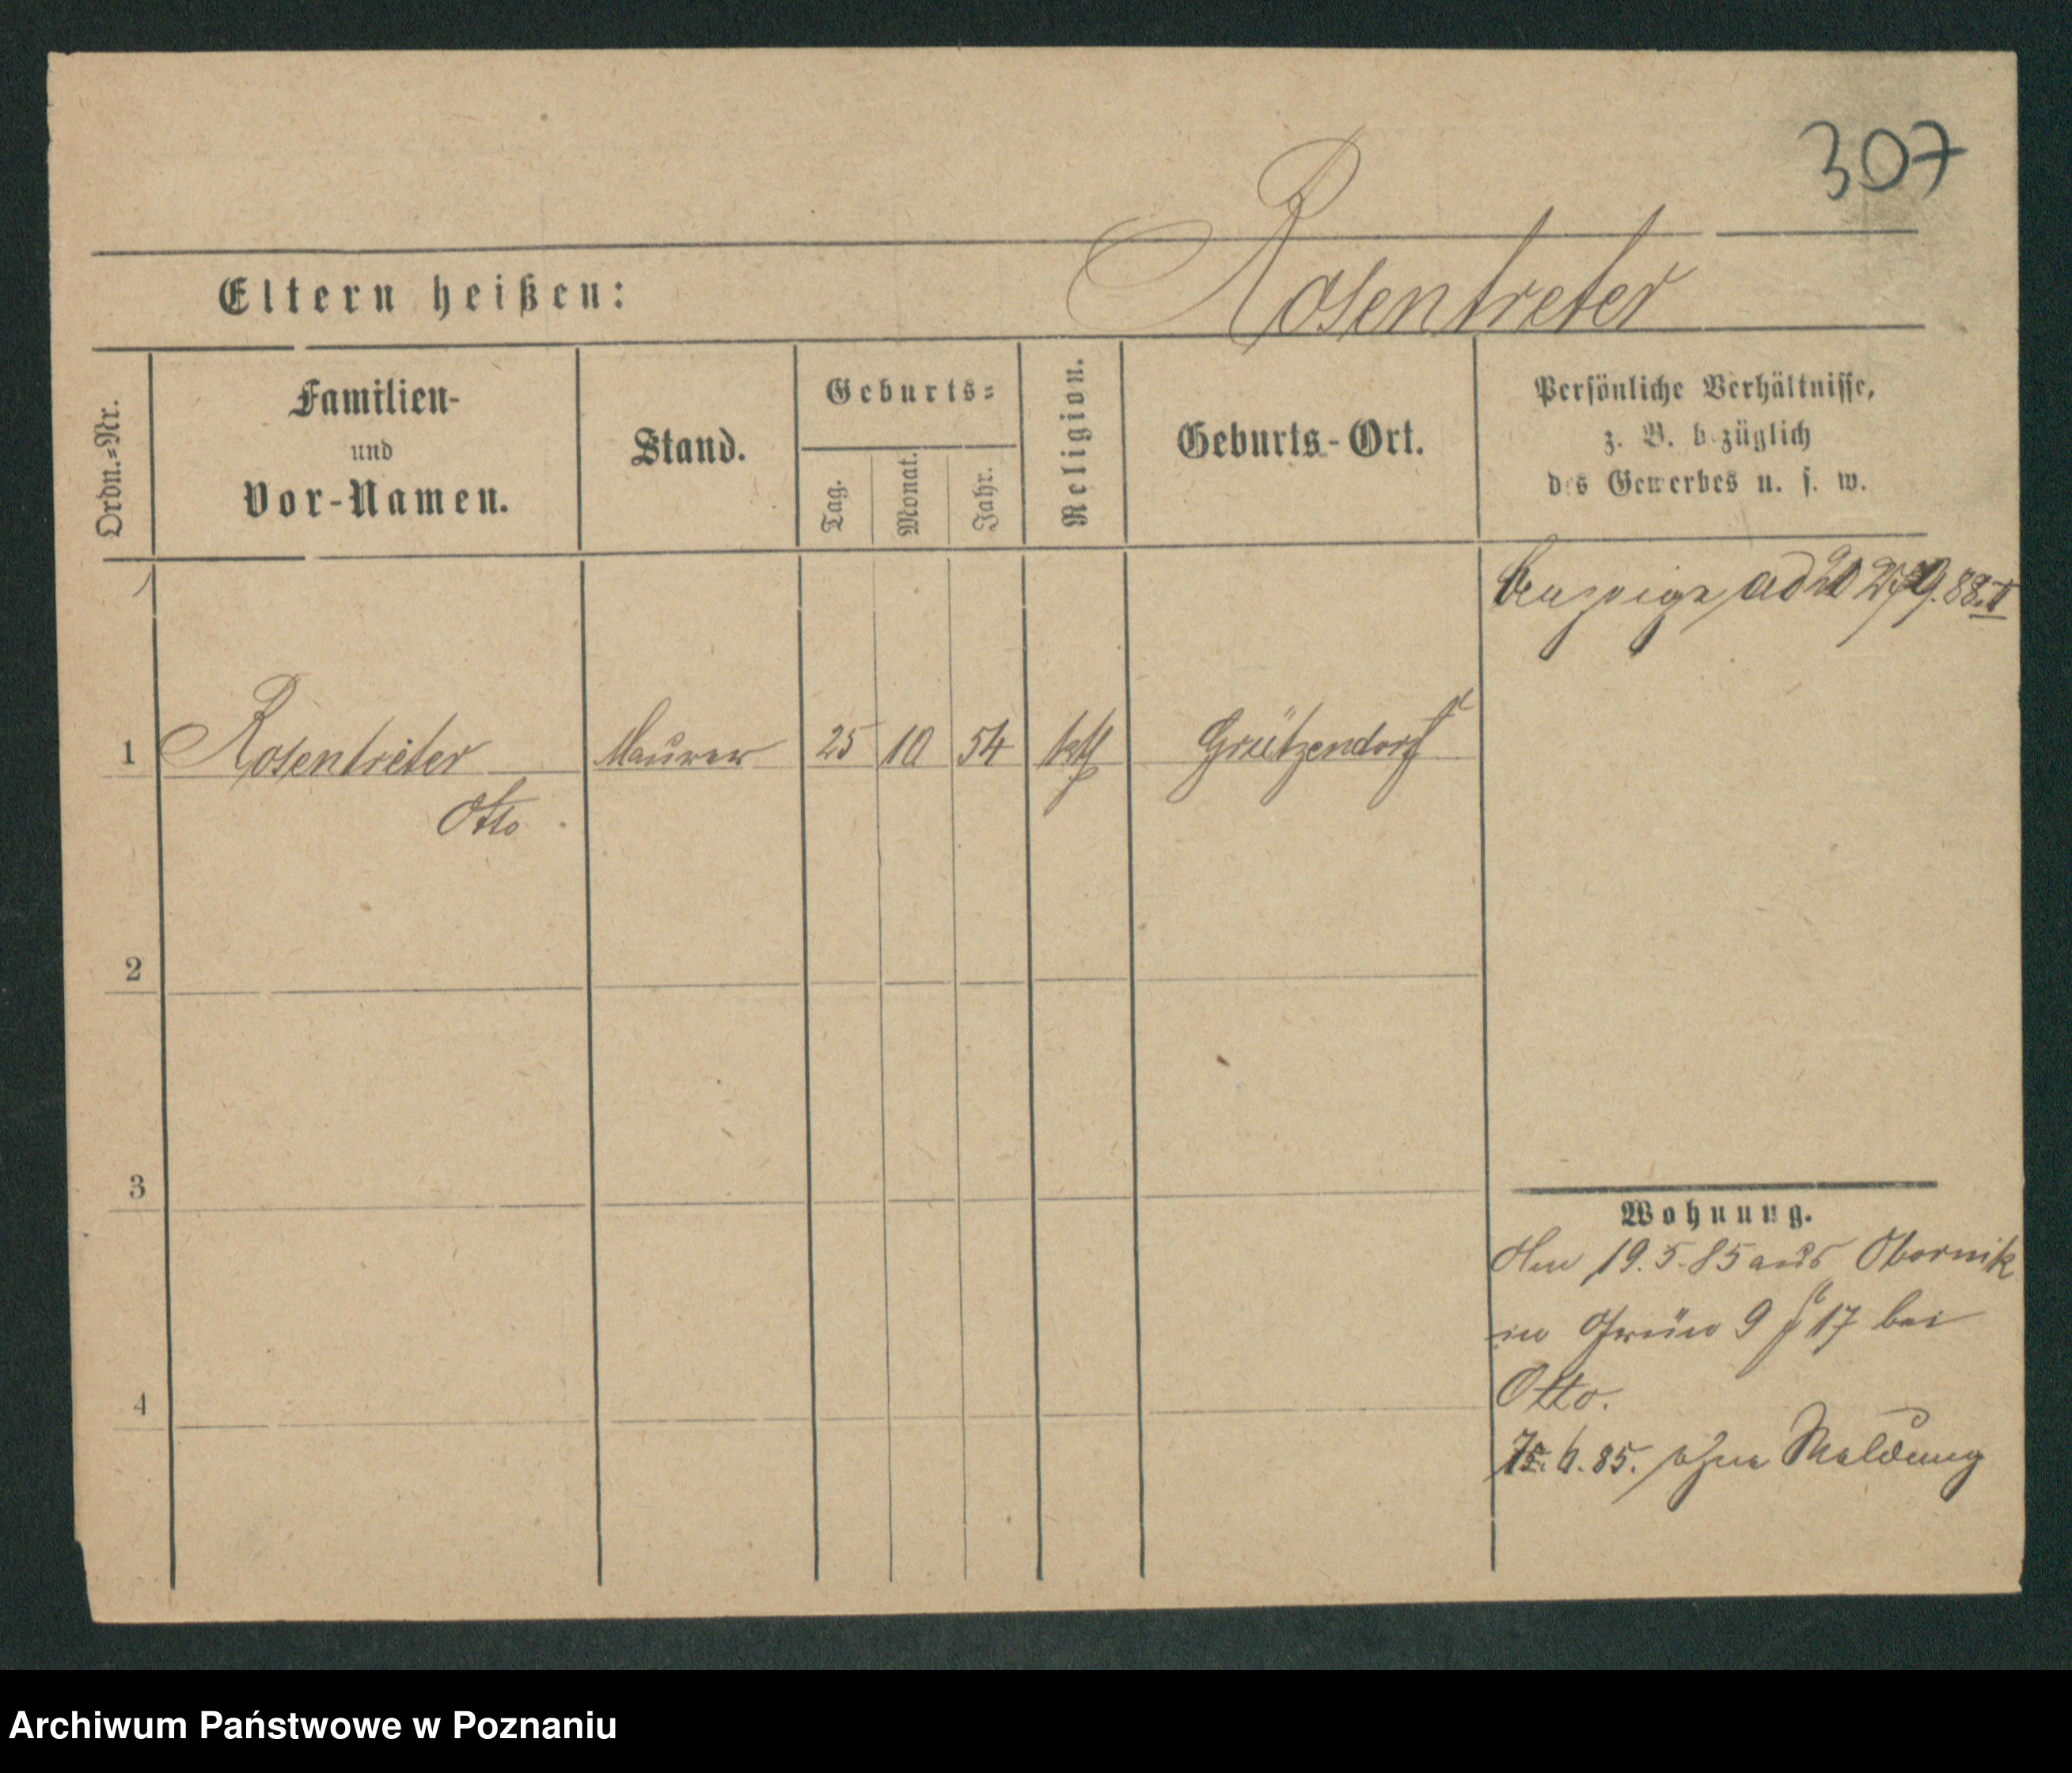 307
Eltern heißen: Rosentreter
Ordn.=Nr.
Familien-
und
Vor-Namen.
Stand.
Geburts=
Tag.
Monat.
Jahr.
Religion.
Geburts-Ort.
Persönliche Verhältnisse,
z. B. bezüglich
des Gewerbes u. s. w.
ad 88. II
1 Rosentreter Maurer 25 10 54 kth Grützendorf
Otto
2
3
4
Wohnung.
19.5.85 aus Obornik
in Grün 9 17 bei
Otto.
6. 85. ohne Meldung
Archiwum Państwowe w Poznaniu